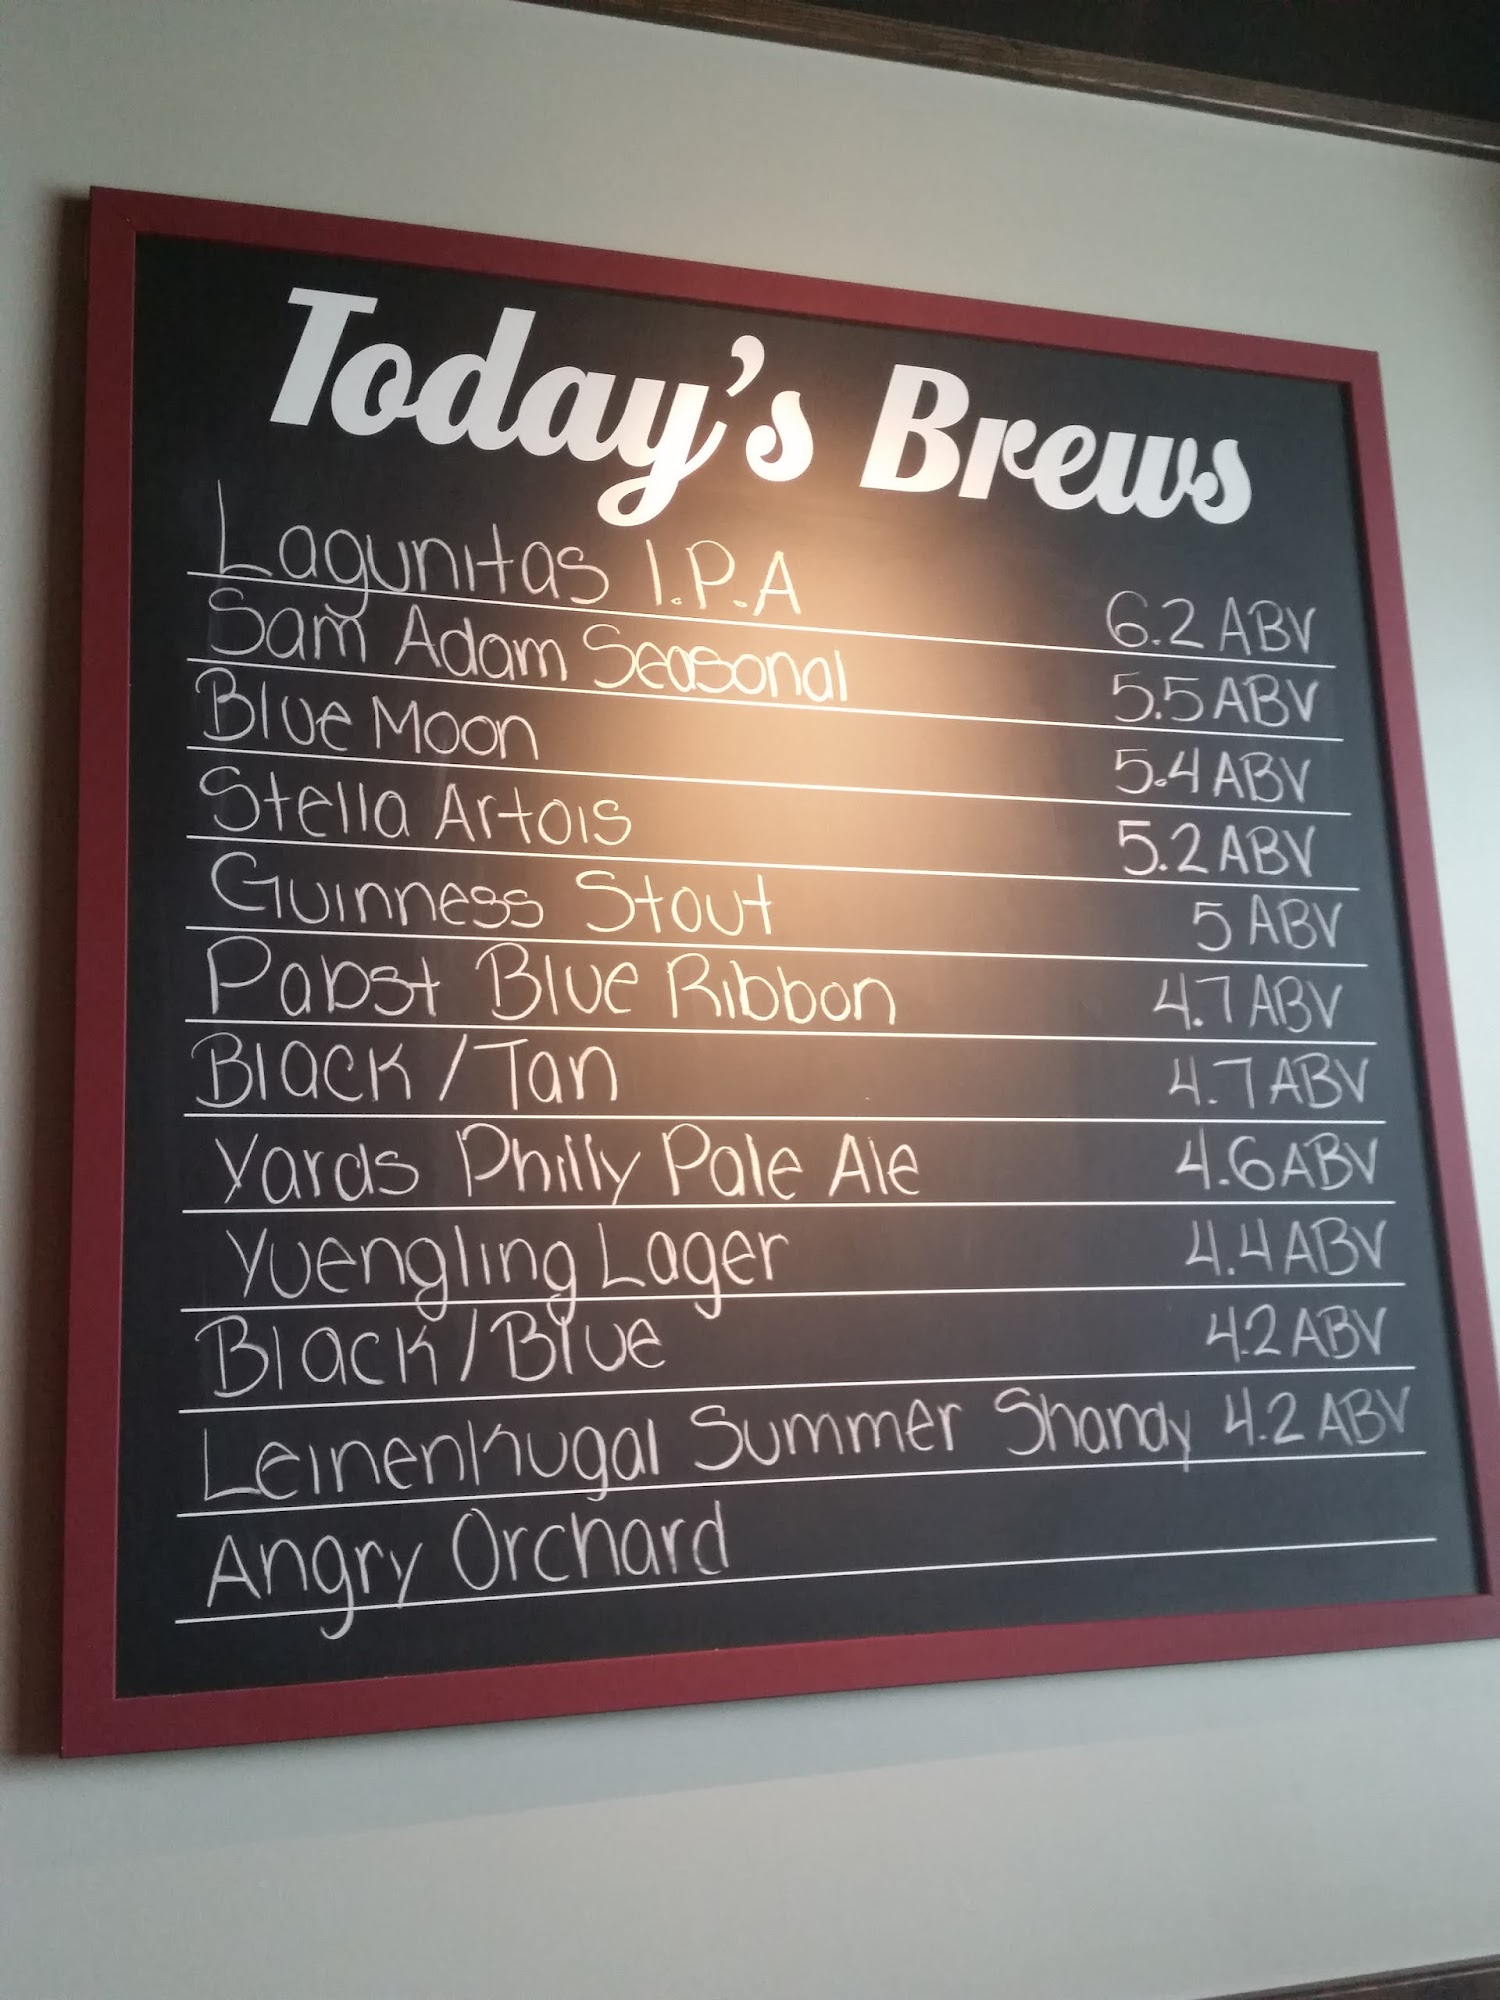 Today's Brews
Lagunitas I.P.A 6.2 ABV
Sam Adam Seasonal 5.5 ABV
Blue Moon 5.4 ABV
Stella Artois 5.2 ABV
Guinness Stout 5 ABV
Pabst Blue Ribbon 4.7 ABV
Black/Tan 4.7 ABV
Yards Philly Pale Ale 4.6 ABV
Yuengling Lager 4.4 ABV
Black/Blue 4.2 ABV
Leinenkugal Summer Shandy 4.2 ABV
Angry Orchard